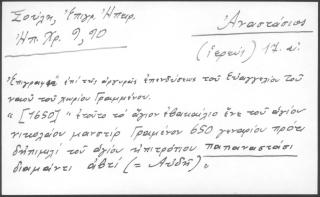 Σούλη, Ἐπιγρ. Ἠπειρ.
Ἠπ. Χρ. 9, 90
Ἀναστάσιος
(ἱερεύς) 17. αἰ.
Ἐπιγραφὴ ἐπὶ τῆς ἀργυρᾶς ἐπενδύσεως τοῦ Εὐαγγελίου τοῦ
ναοῦ τοῦ χωρίου Γραμμένου.
"[1650]" ἐτοῦτο τὸ ἅγιον ἐβακαίλιο ἔνε τοῦ ἁγίου
νικολάου μανστίρ Γραμένου 650 γεναρίου πρότι
δηπιμελί τοῦ ἁγίου ηπιτρόπιου παπαναστάσι
διαμάντι ἀβτί (= Αὐδῆ).